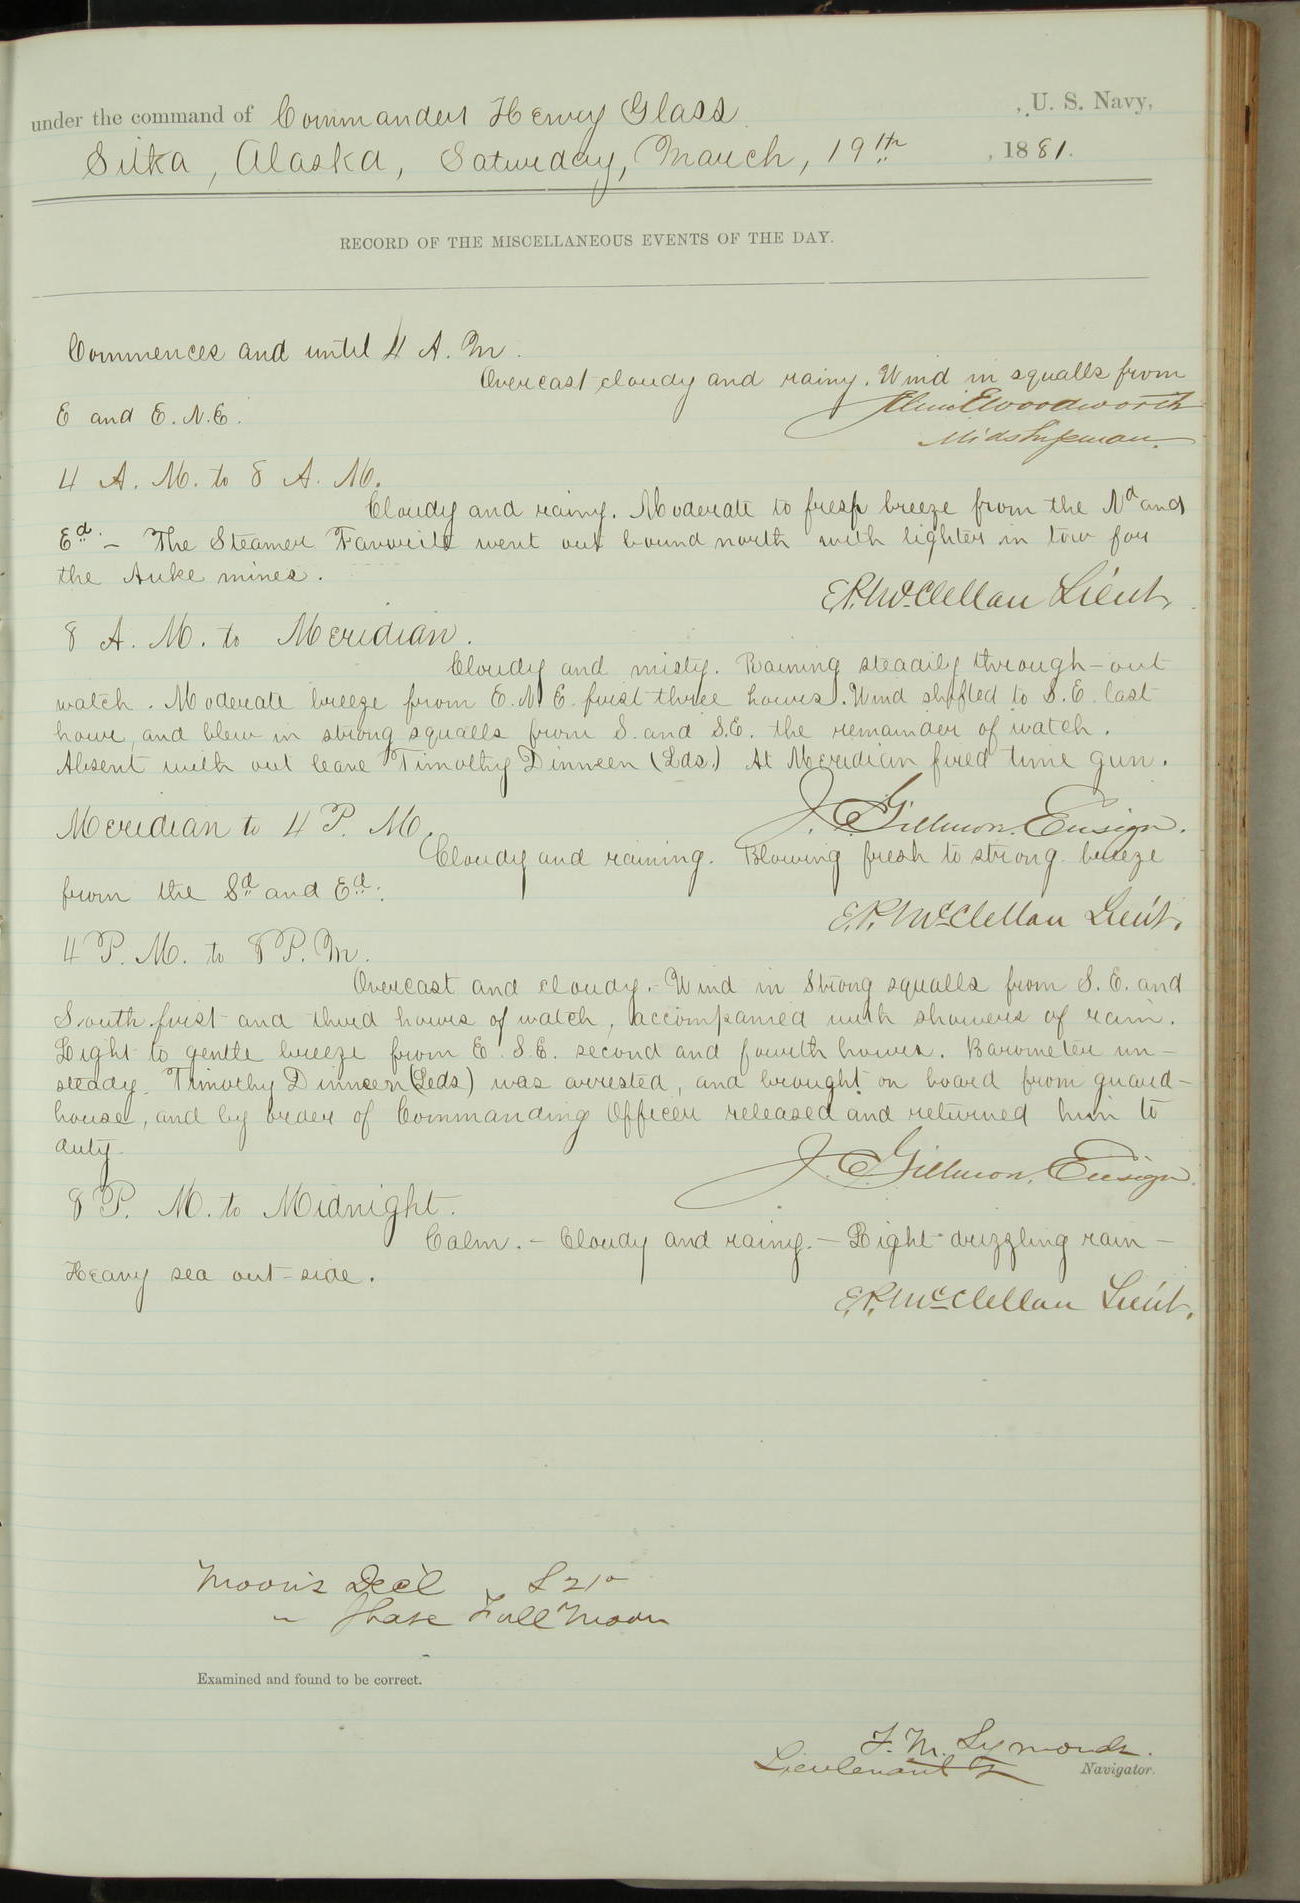 under the command of Commander Henry Glass, U. S. Navy,
Sitka, Alaska, Saturday, March, 19th, 1881.
RECORD OF THE MISCELLANEOUS EVENTS OF THE DAY.
Commences and until 4 A. M.
Overcast cloudy and rainy. Wind in squalls from
E and E. N. E.
Woodworth
Midshipman.
4 A. M. to 8 A. M.
Cloudy and rainy. Moderate to fresh breeze from the Nd and
Ed. – The Steamer Favorite went out bound north with lighter in tow for
the Auke mines.
E.P. McClellan Lieut.
8 A. M. to Meridian.
Cloudy and misty. Raining steadily through-out
watch. Moderate breeze from E. N. E. first three hours. Wind shifted to S. E. last
hour, and blew in strong squalls from S. and S.E. the remainder of watch.
Absent with out leave Timothy Dinneen (Lds.) At Meridian fired time gun.
J. C. Gillmore, Ensign.
Meridian to 4 P. M.
Cloudy and raining. Blowing fresh to strong breeze
from the Sd and Ed.
E.P. McClellan Lieut.
4 P. M. to 8 P. M.
Overcast and cloudy. – Wind in Strong squalls from S. E. and
South first and third hours of watch, accompanied with showers of rain.
Light to gentle breeze from E. S.E. second and fourth hours. Barometer un-
steady. Timothy Dinneen (Leds) was arrested, and brought on board from guard-
house, and by order of Commanding Officer released and returned him to
duty.
J. C. Gillmore, Ensign.
8 P. M. to Midnight.
Calm. – Cloudy and rainy. – Light drizzling rain –
Heavy sea out-side.
E.P. McClellan Lieut.
Moon's Decl S 21°
" Phase Full Moon
Examined and found to be correct.
F. M. Symonds.
Lieutenant &
Navigator.